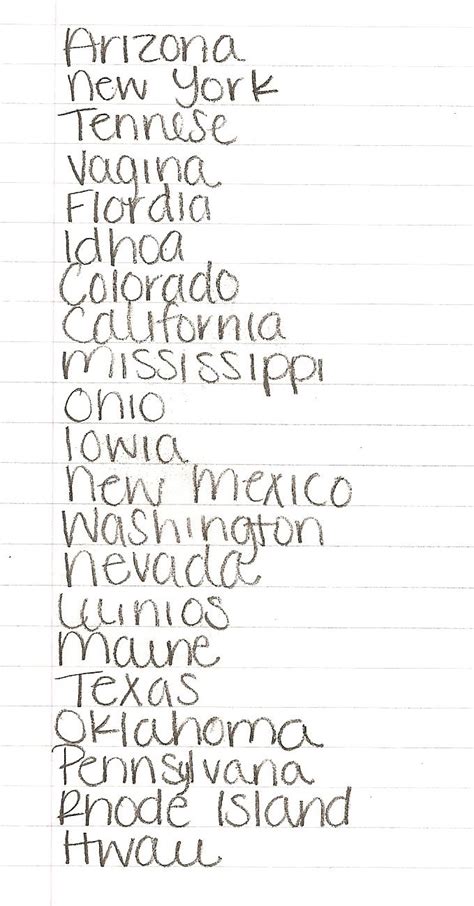 Arizona
new York
Tennese
vagina
Flordia
Idhoa
Colorado
California
mississippi
Ohio
Iowia
new mexico
Washington
nevada
Illinios
maine
Texas
Oklahoma
Pennsylvana
Rhode Island
Hwaii